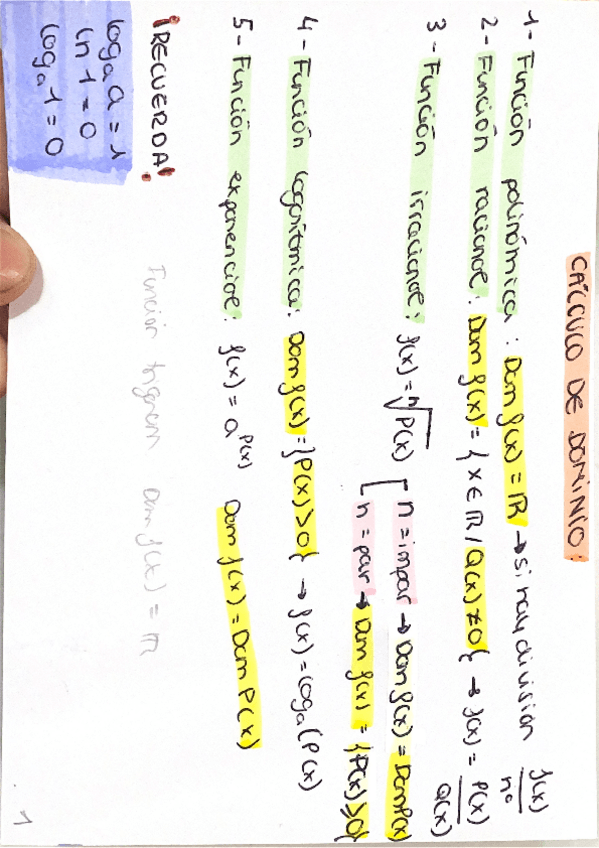 CÁLCULO DE DOMINIO:
1- Función polinómica: Dom f(x) = ℝ → si hay división f(x)/nº
2- Función racional: Dom f(x) = { x ∈ ℝ / Q(x) ≠ 0 } → f(x) = P(x)/Q(x)
3- Función irracional: f(x) = ⁿ√P(x) [ n = impar → Dom f(x) = Dom P(x)
n = par → Dom f(x) = { P(x) ≥ 0 }
4- Función logarítmica: Dom f(x) = { P(x) > 0 } → f(x) = logₐ(P(x)
5- Función exponencial: f(x) = a^P(x) Dom f(x) = Dom P(x)
Función trigonom Dom f(x) = ℝ
¡RECUERDA!
logₐ a = 1
ln 1 = 0
logₐ 1 = 0
1